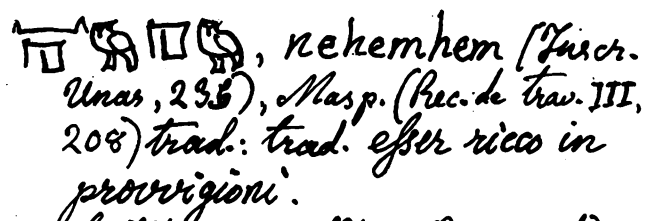 𓈖𓉔𓅓𓉔𓅓, nehemhem (Inscr.
Unas, 236), Masp. (Rec. de trav. III,
208) trad.: trad. esser ricco in
provvigioni.